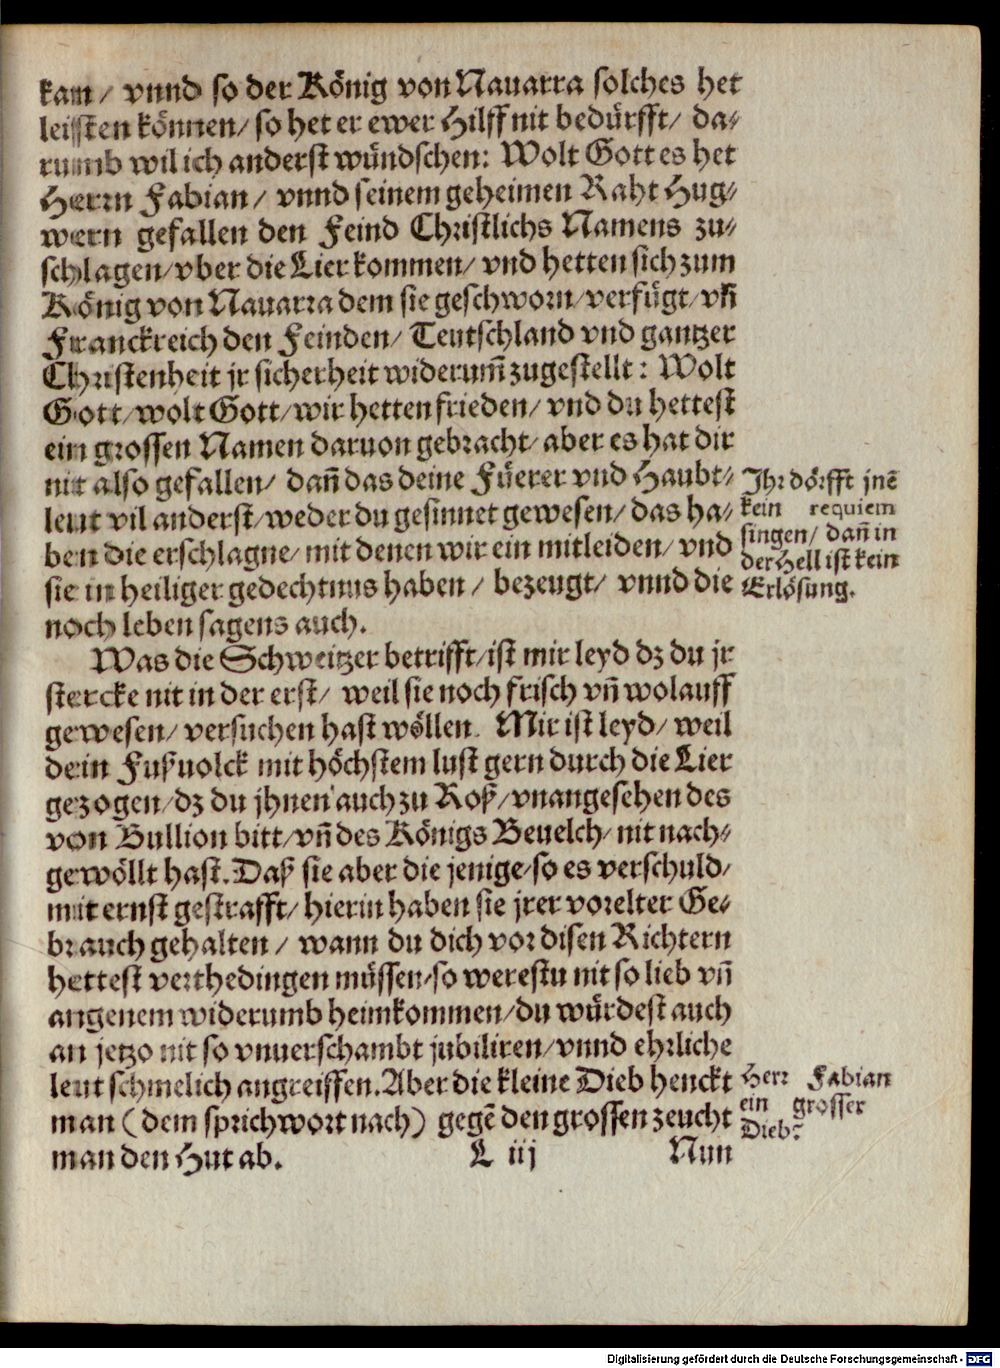 kam/ vnnd so der König von Nauarra solches het
leissten können/ so het er ewer Hilff nit bedürfft/ da⸗
rumb wil ich anderst wündschen: Wolt Gott es het
Herrn Fabian/ vnnd seinem geheimen Raht Hug⸗
wern gefallen den Feind Christlichs Namens zu⸗
schlagen/ vber die Lier kommen/ vnd hetten sich zum
König von Nauarra dem sie geschworn/ verfügt/ vñ
Franckreich den Feinden/ Teutschland vnd gantzer
Christenheit jr sicherheit widerum̃ zugestellt: Wolt
Gott/ wolt Gott/ wir hetten frieden/ vnd du hettest
ein grossen Namen daruon gebracht/ aber es hat dir
nit also gefallen/ dañ das deine Füerer vnd Haubt⸗
leut vil anderst/ weder du gesinnet gewesen/ das ha⸗
ben die erschlagne/ mit denen wir ein mitleiden/ vnd
sie in heiliger gedechtnus haben/ bezeugt/ vnnd die
noch leben sagens auch.
Ihr dörfft jnẽ
kein requiem
singen/ dañ in
der Hell ist kein
Erlösung.
Was die Schweitzer betrifft/ ist mir leyd dz du jr
stercke nit in der erst/ weil sie noch frisch vñ wolauff
gewesen/ versuchen hast wöllen. Mir ist leyd/ weil
dein Fußuolck mit höchstem lust gern durch die Lier
gezogen/ dz du jhnen auch zu Roß/ vnangesehen des
von Bullion bitt/ vñ des Königs Beuelch/ nit nach⸗
gewöllt hast. Daß sie aber die jenige/ so es verschuld/
mit ernst gestrafft/ hierin haben sie jrer vorelter Ge⸗
brauch gehalten/ wann du dich vor disen Richtern
hettest verthedingen müssen/ so werestu nit so lieb vñ
angenem widerumb heimkommen/ du würdest auch
an jetzo nit so vnuerschambt jubiliren/ vnnd ehrliche
leut schmelich angreiffen. Aber die kleine Dieb henckt
man (dem sprichwort nach) gegẽ den grossen zeucht
man den Hut ab.
Herr Fabian
ein grosser
Dieb.
L iij
Nun
Digitalisierung gefördert durch die Deutsche Forschungsgemeinschaft - DFG